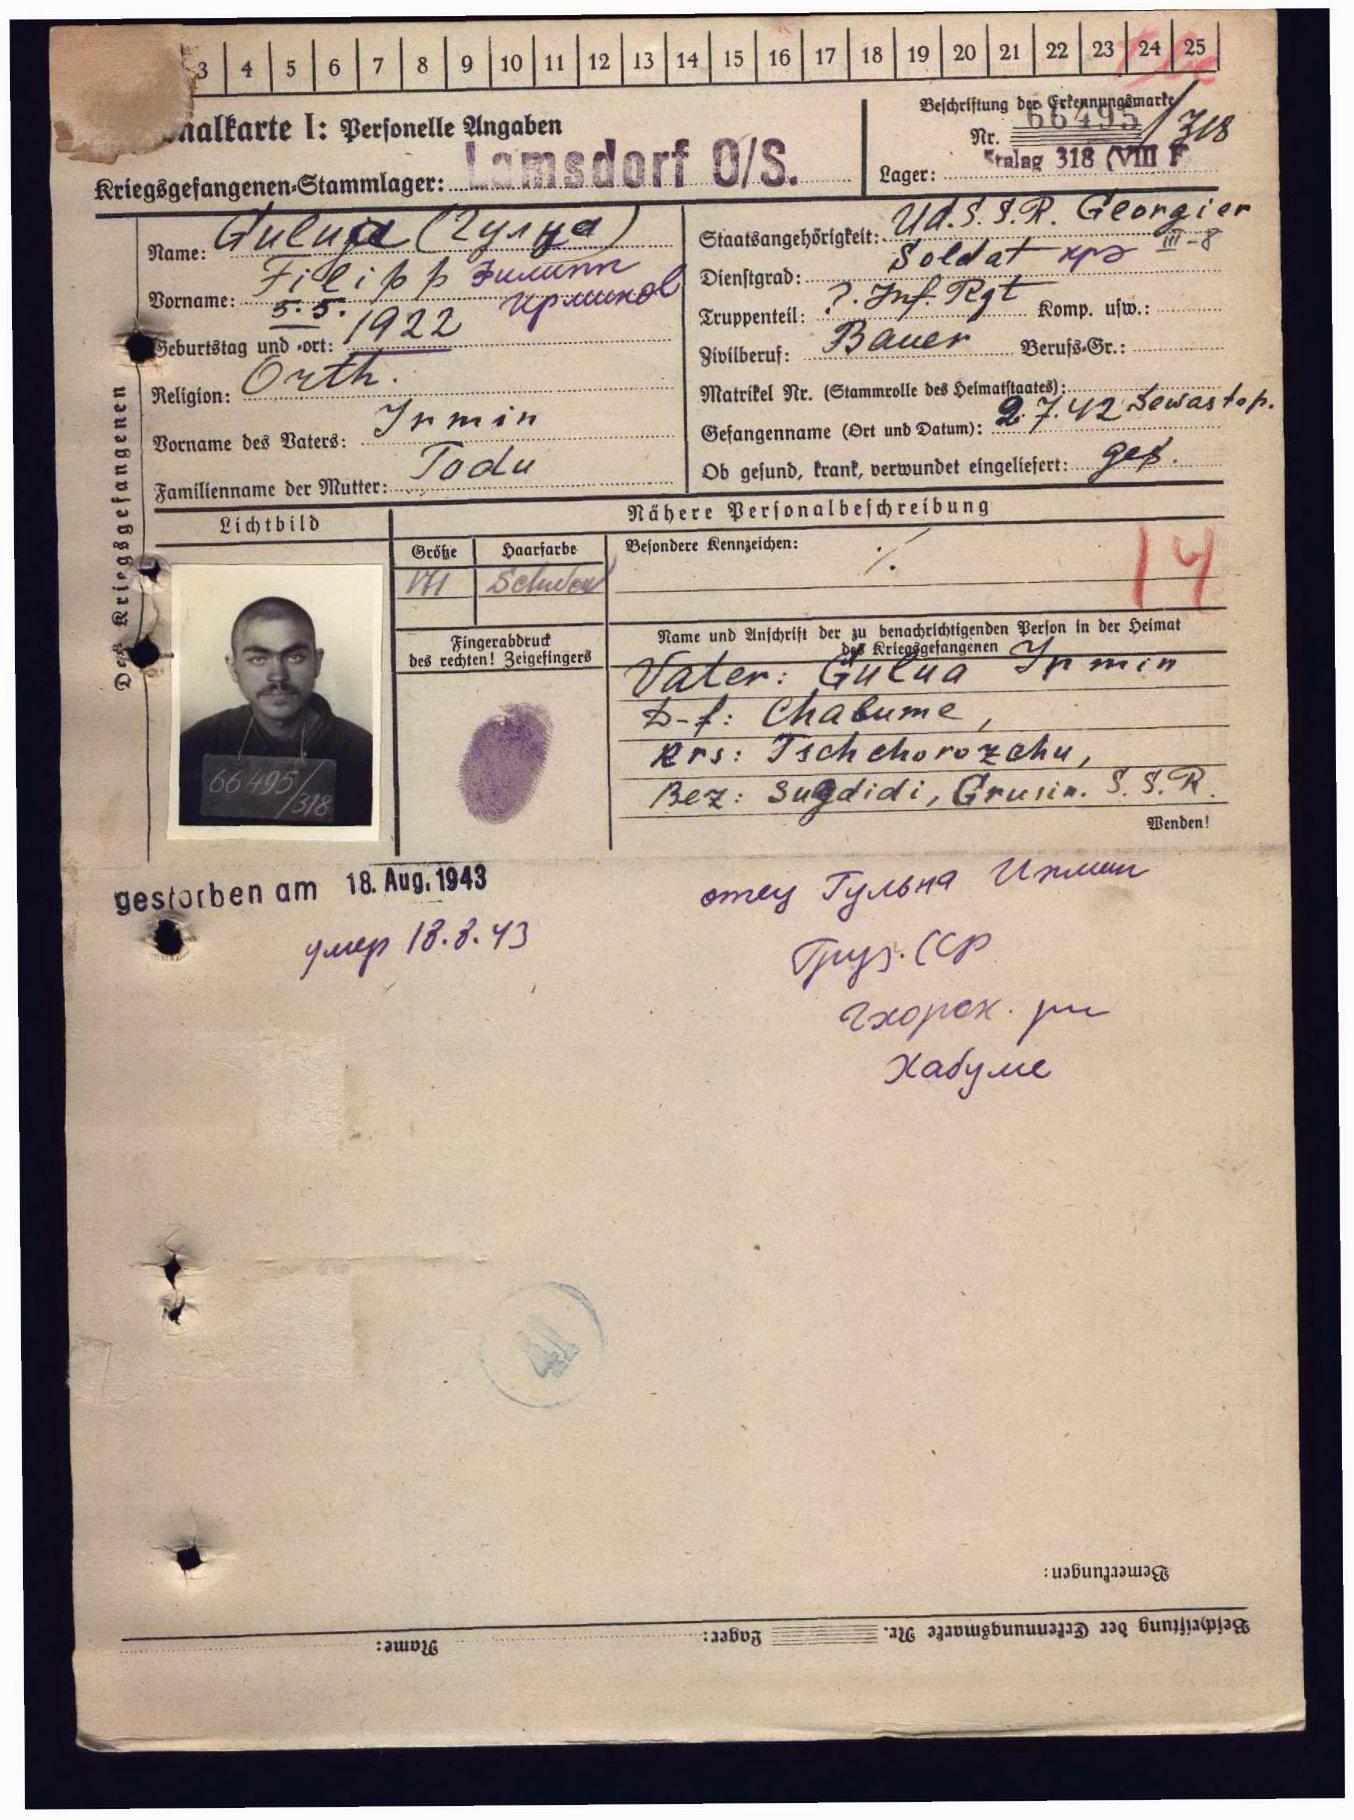 3 4 5 6 7 8 9 10 11 12 13 14 15 16 17 18 19 20 21 22 23 24 25
Beschriftung der Erkennungsmarke
Nr. 66495/318
Lager: Stalag 318 (VIII F
nalkarte I: Personelle Angaben
Kriegsgefangenen-Stammlager: Lamsdorf O/S.
Des Kriegsgefangenen
Name: Gulua (Гулуа)
Vorname: Filipp Филипп
Ирминов
Geburtstag und -ort: 5.5. 1922
Religion: Orth.
Vorname des Vaters: Irmin
Familienname der Mutter: Todu
Staatsangehörigkeit: U.d.S.S.R. Georgier
III-8
Dienstgrad: Soldat кра
Truppenteil: ?. Inf. Rgt Komp. usw.:
Zivilberuf: Bauer Berufs-Gr.:
Matrikel Nr. (Stammrolle des Heimatstaates):
Gefangenname (Ort und Datum): 2.7.42 Sewastop.
Ob gesund, krank, verwundet eingeliefert: ges.
Lichtbild
Nähere Personalbeschreibung
Größe Haarfarbe Besondere Kennzeichen: ./.
171 Schwarz
14
Fingerabdruck
des rechten! Zeigefingers
66495/318
Name und Anschrift der zu benachrichtigenden Person in der Heimat
des Kriegsgefangenen
Vater: Gulua Irmin
D-f: Chabume,
Krs: Tschchorozchu,
Bez: Sugdidi, Grusin. S.S.R.
Wenden!
gestorben am 18. Aug. 1943
умер 18.8.43
отец Гульна Ихмин
Груз. ССР
Чхорох. рн
Хабуме
41
Bemerkungen:
Beschriftung der Erkennungsmarke Nr. Lager: Name: